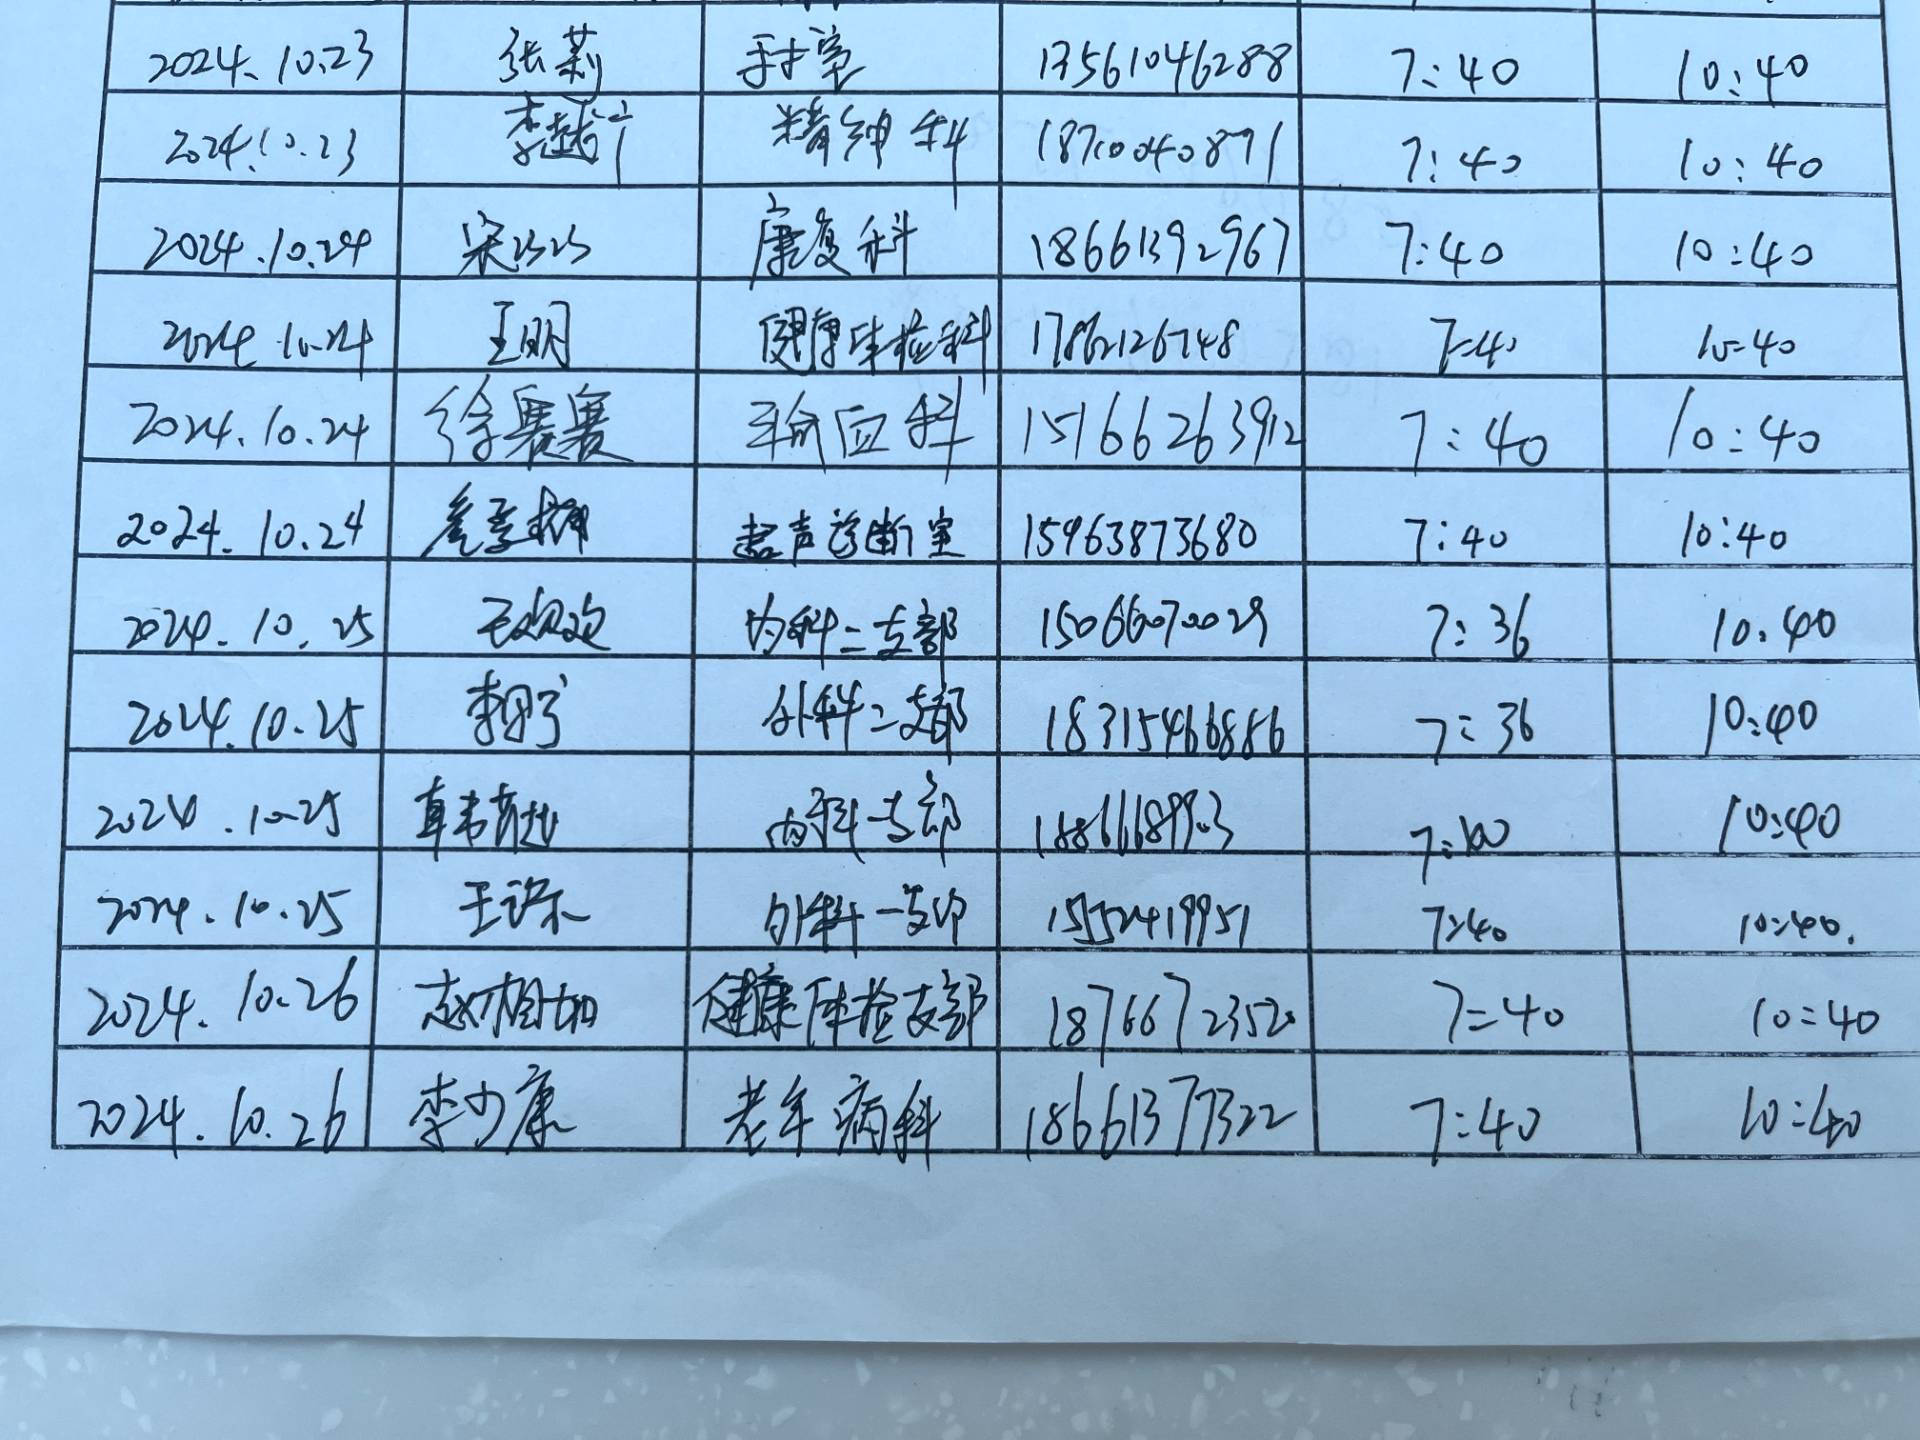 2024.10.23 张莉 手术室 13561046288 7:40 10:40
2024.10.23 精神科 18710040871 7:40 10:40
2024.10.24 宋巧巧 康复科 18661392967 7:40 10:40
2024.10.24 王明 健康体检科 17862126748 7:40 10:40
2024.10.24 徐赛赛 输血科 15166263912 7:40 10:40
2024.10.24 超声诊断室 15963873680 7:40 10:40
2024.10.25 王欢欢 内科二支部 15066070029 7:36 10:40
2024.10.25 外科二支部 18315466886 7:36 10:40
2024.10.25 内科一支部 10:40
2024.10.25 外科一支部 15552419951 7:40 10:40.
2024.10.26 健康体检支部 18766723520 7=40 10=40
2024.10.26 李少康 老年病科 18661377322 7:40 10:40